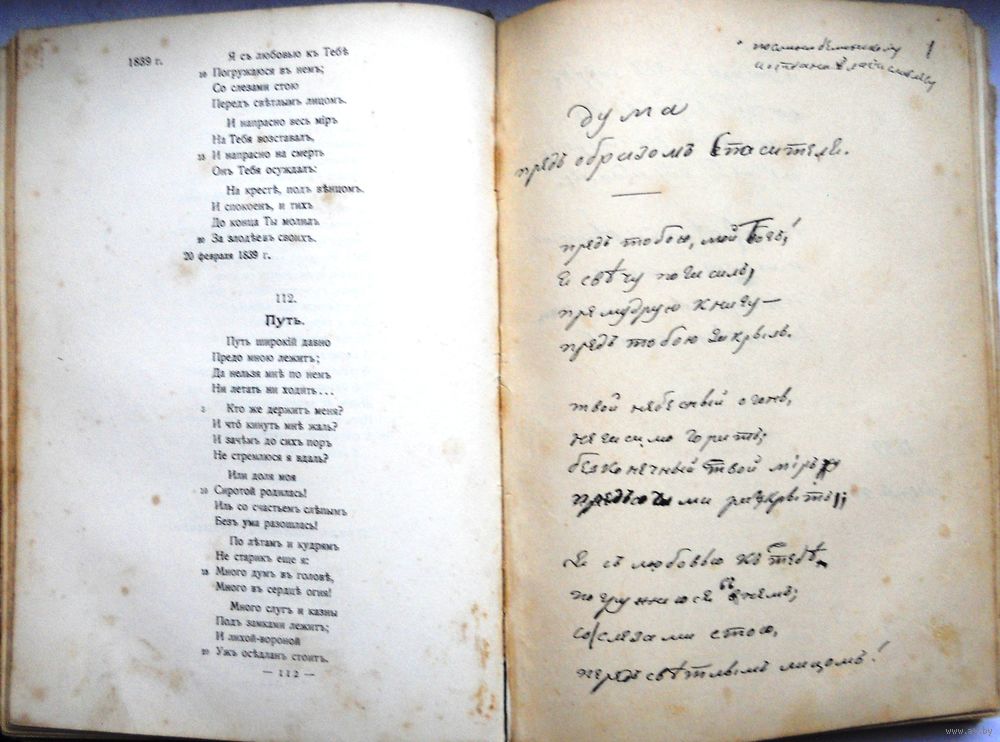 1839 г.
Я съ любовью къ Тебѣ
10 Погружаюся въ немъ;
Со слезами стою
Передъ свѣтлымъ лицомъ.
И напрасно весь міръ
На Тебя возставалъ,
15 И напрасно на смерть
Онъ Тебя осуждалъ:
На крестѣ, подъ вѣнцомъ.
И спокоенъ, и тихъ
До конца Ты молилъ
20 За злодѣевъ своихъ.
20 февраля 1839 г.
112.
Путь.
Путь широкій давно
Предо мною лежитъ;
Да нельзя мнѣ по немъ
Ни летать ни ходить...
5 Кто же держитъ меня?
И что́ кинуть мнѣ жаль?
И зачѣмъ до сихъ поръ
Не стремлюся я вдаль?
Или доля моя
10 Сиротой родилась!
Иль со счастьемъ слѣпымъ
Безъ ума разошлась!
По лѣтамъ и кудрямъ
Не старикъ еще я:
15 Много думъ въ головѣ,
Много въ сердцѣ огня!
Много слугъ и казны
Подъ замками лежитъ;
И лихой-вороной
20 Ужъ осѣдланъ стоитъ.
— 112 —
1
дума
предъ образомъ Спасителя.
предъ тобою, мой Богъ!
Я свѣчу погасилъ,
премудрую книгу —
предъ тобою закрылъ.
твой небесный огонь,
негасимо горитъ;
безконечный твой міръ
предъ очами раскрытъ;
Я съ любовью къ тебѣ,
погружаюся въ немъ;
со слезами стою,
передъ свѣтлымъ лицомъ!